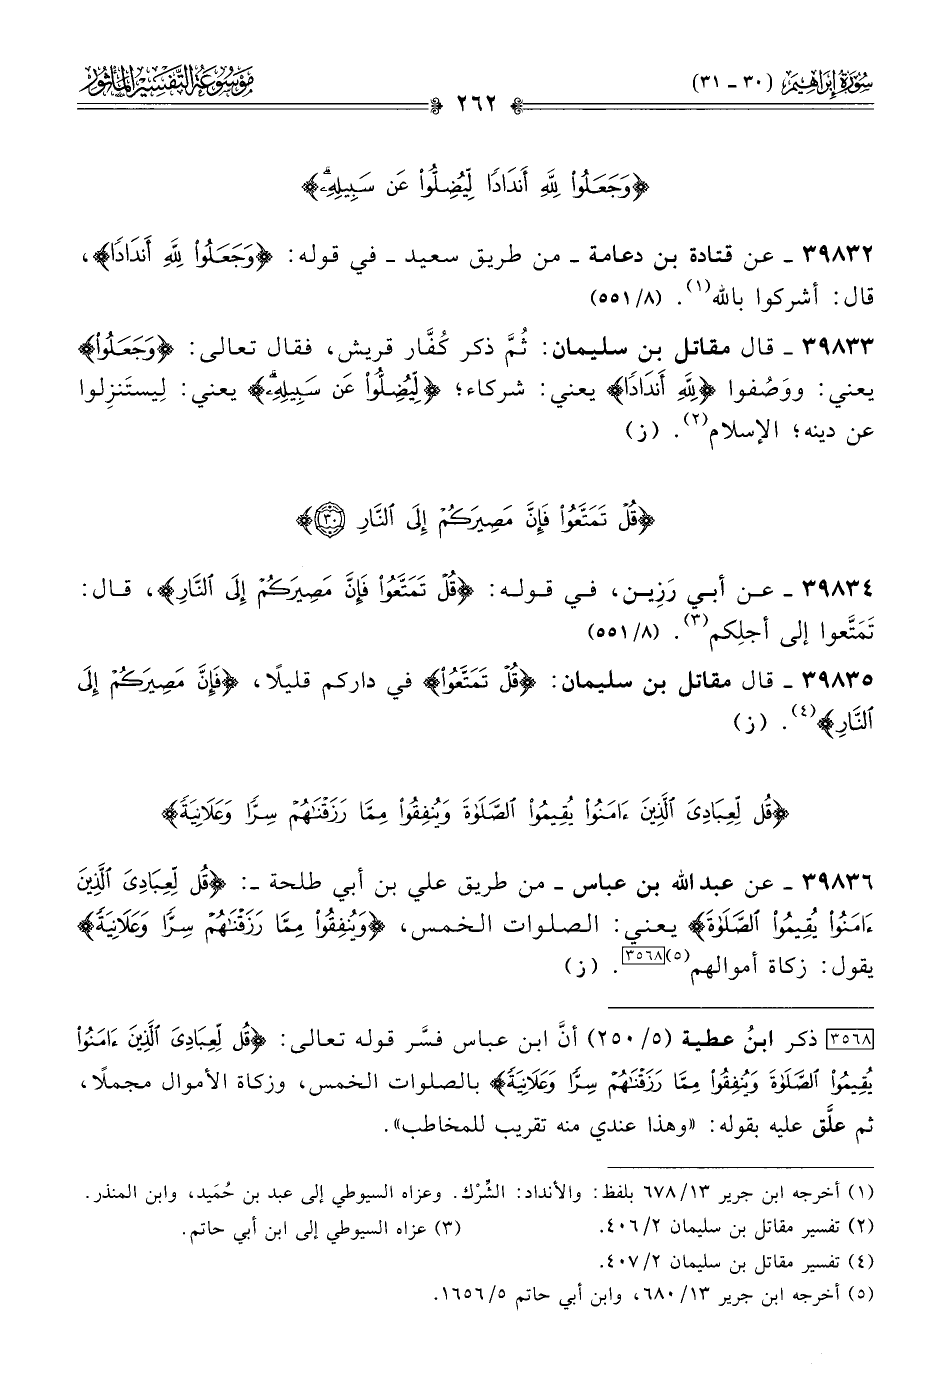 سُورَةُ إِبْرَاهِيمَ (٣٠ - ٣١)
٢٦٢
مَوْسُوعَةُ التَّفْسِيرِ المَأْثُورِ
﴿وَجَعَلُوا۟ لِلَّهِ أَندَادًا لِّيُضِلُّوا۟ عَن سَبِيلِهِۦۗ﴾
٣٩٨٣٢ - عن قتادة بن دعامة - من طريق سعيد - في قوله: ﴿وَجَعَلُوا۟ لِلَّهِ أَندَادًا﴾،
قال: أشركوا بالله(١). (٥٥١/٨)
٣٩٨٣٣ - قال مقاتل بن سليمان: ثُمَّ ذكر كُفَّار قريش، فقال تعالى: ﴿وَجَعَلُوا۟﴾
يعني: ووَصُفوا ﴿لِلَّهِ أَندَادًا﴾ يعني: شركاء؛ ﴿لِّيُضِلُّوا۟ عَن سَبِيلِهِۦۗ﴾ يعني: لِيستَنزِلوا
عن دينه؛ الإسلام(٢). (ز)
﴿قُلْ تَمَتَّعُوا۟ فَإِنَّ مَصِيرَكُمْ إِلَى ٱلنَّارِ ٣٠﴾
٣٩٨٣٤ - عن أبي رَزِين، في قوله: ﴿قُلْ تَمَتَّعُوا۟ فَإِنَّ مَصِيرَكُمْ إِلَى ٱلنَّارِ﴾، قال:
تَمَتَّعوا إلى أجلِكم(٣). (٥٥١/٨)
٣٩٨٣٥ - قال مقاتل بن سليمان: ﴿قُلْ تَمَتَّعُوا۟﴾ في داركم قليلًا، ﴿فَإِنَّ مَصِيرَكُمْ إِلَى
ٱلنَّارِ﴾(٤). (ز)
﴿قُل لِّعِبَادِىَ ٱلَّذِينَ ءَامَنُوا۟ يُقِيمُوا۟ ٱلصَّلَوٰةَ وَيُنفِقُوا۟ مِمَّا رَزَقْنَٰهُمْ سِرًّا وَعَلَانِيَةً﴾
٣٩٨٣٦ - عن عبد الله بن عباس - من طريق علي بن أبي طلحة -: ﴿قُل لِّعِبَادِىَ ٱلَّذِينَ
ءَامَنُوا۟ يُقِيمُوا۟ ٱلصَّلَوٰةَ﴾ يعني: الصلوات الخمس، ﴿وَيُنفِقُوا۟ مِمَّا رَزَقْنَٰهُمْ سِرًّا وَعَلَانِيَةً﴾
يقول: زكاة أموالهم(٥)[٣٥٦٨]. (ز)
[٣٥٦٨] ذكر ابنُ عطية (٢٥٠/٥) أنَّ ابن عباس فسَّر قوله تعالى: ﴿قُل لِّعِبَادِىَ ٱلَّذِينَ ءَامَنُوا۟
يُقِيمُوا۟ ٱلصَّلَوٰةَ وَيُنفِقُوا۟ مِمَّا رَزَقْنَٰهُمْ سِرًّا وَعَلَانِيَةً﴾ بالصلوات الخمس، وزكاة الأموال مجملًا،
ثم علَّق عليه بقوله: «وهذا عندي منه تقريب للمخاطب».
(١) أخرجه ابن جرير ٦٧٨/١٣ بلفظ: والأنداد: الشِّرْك. وعزاه السيوطي إلى عبد بن حُمَيد، وابن المنذر.
(٢) تفسير مقاتل بن سليمان ٤٠٦/٢. (٣) عزاه السيوطي إلى ابن أبي حاتم.
(٤) تفسير مقاتل بن سليمان ٤٠٧/٢.
(٥) أخرجه ابن جرير ٦٨٠/١٣، وابن أبي حاتم ١٦٥٦/٥.